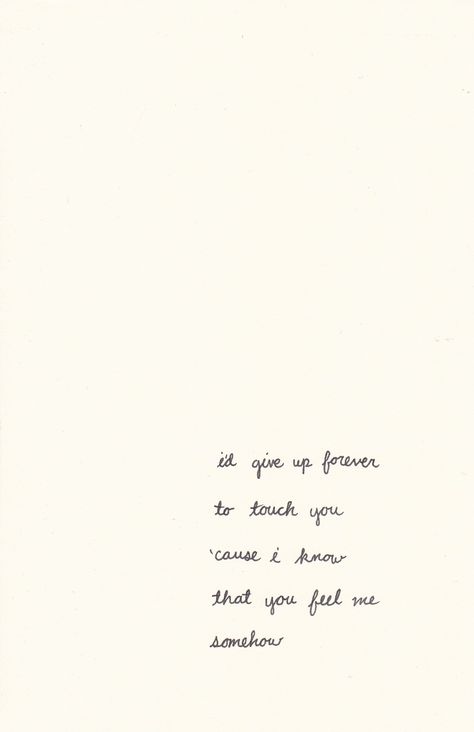 i'd give up forever
to touch you
'cause i know
that you feel me
somehow